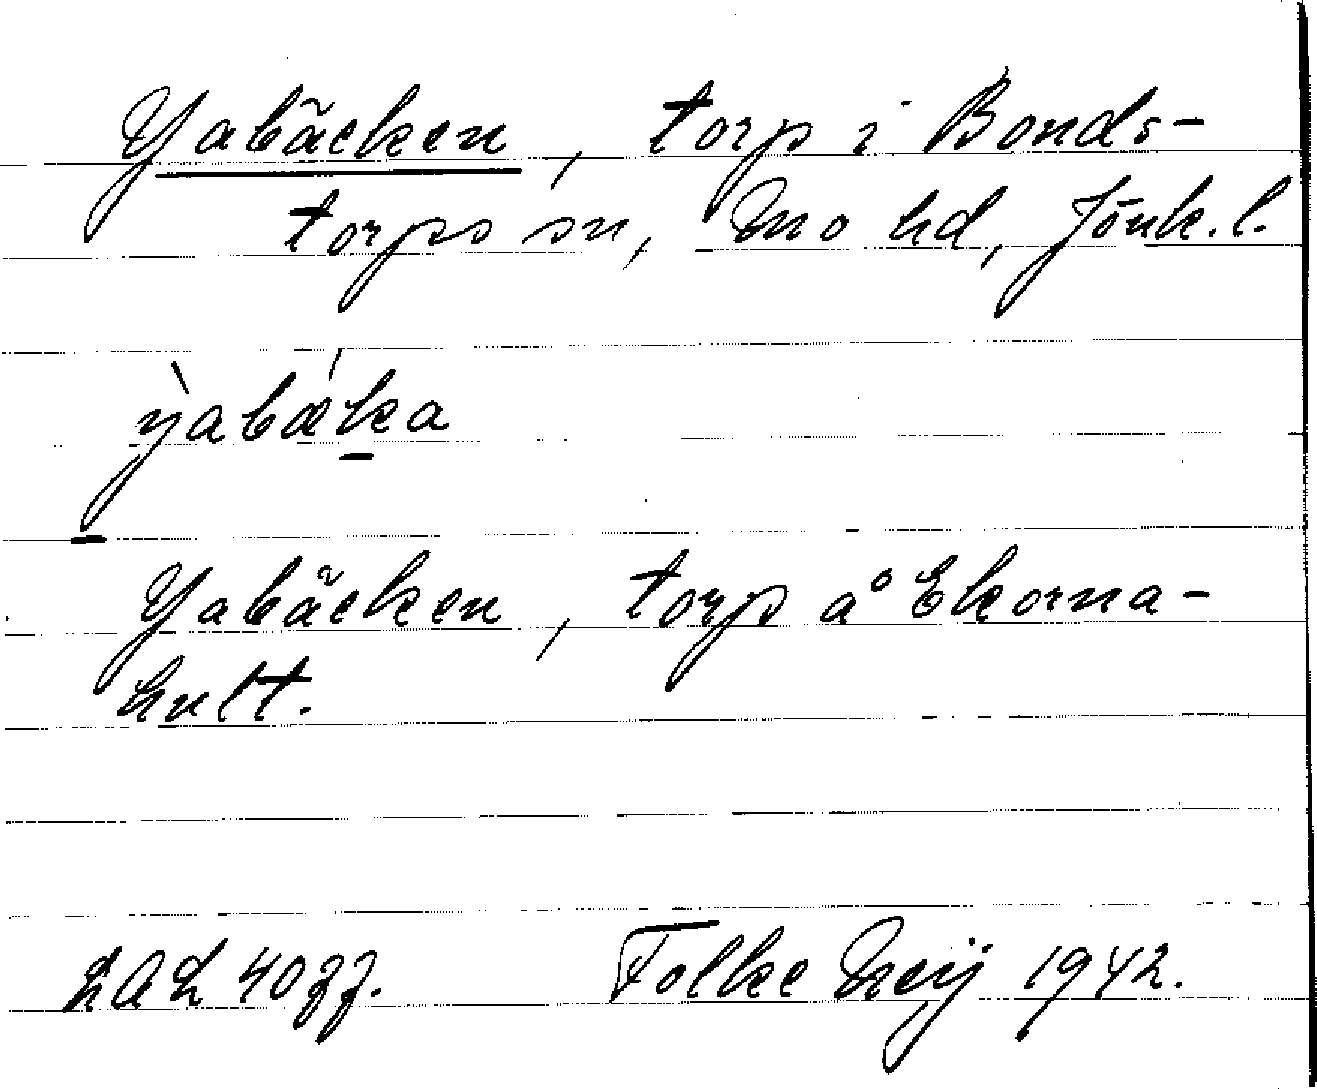 Yabäcken, torp i Bonds-
torps sn, Mo hd, Jönk. l.
yàbǽka
Yabäcken, torp å Ekorna-
hult.
LAL 4077. Folke Meij 1942.